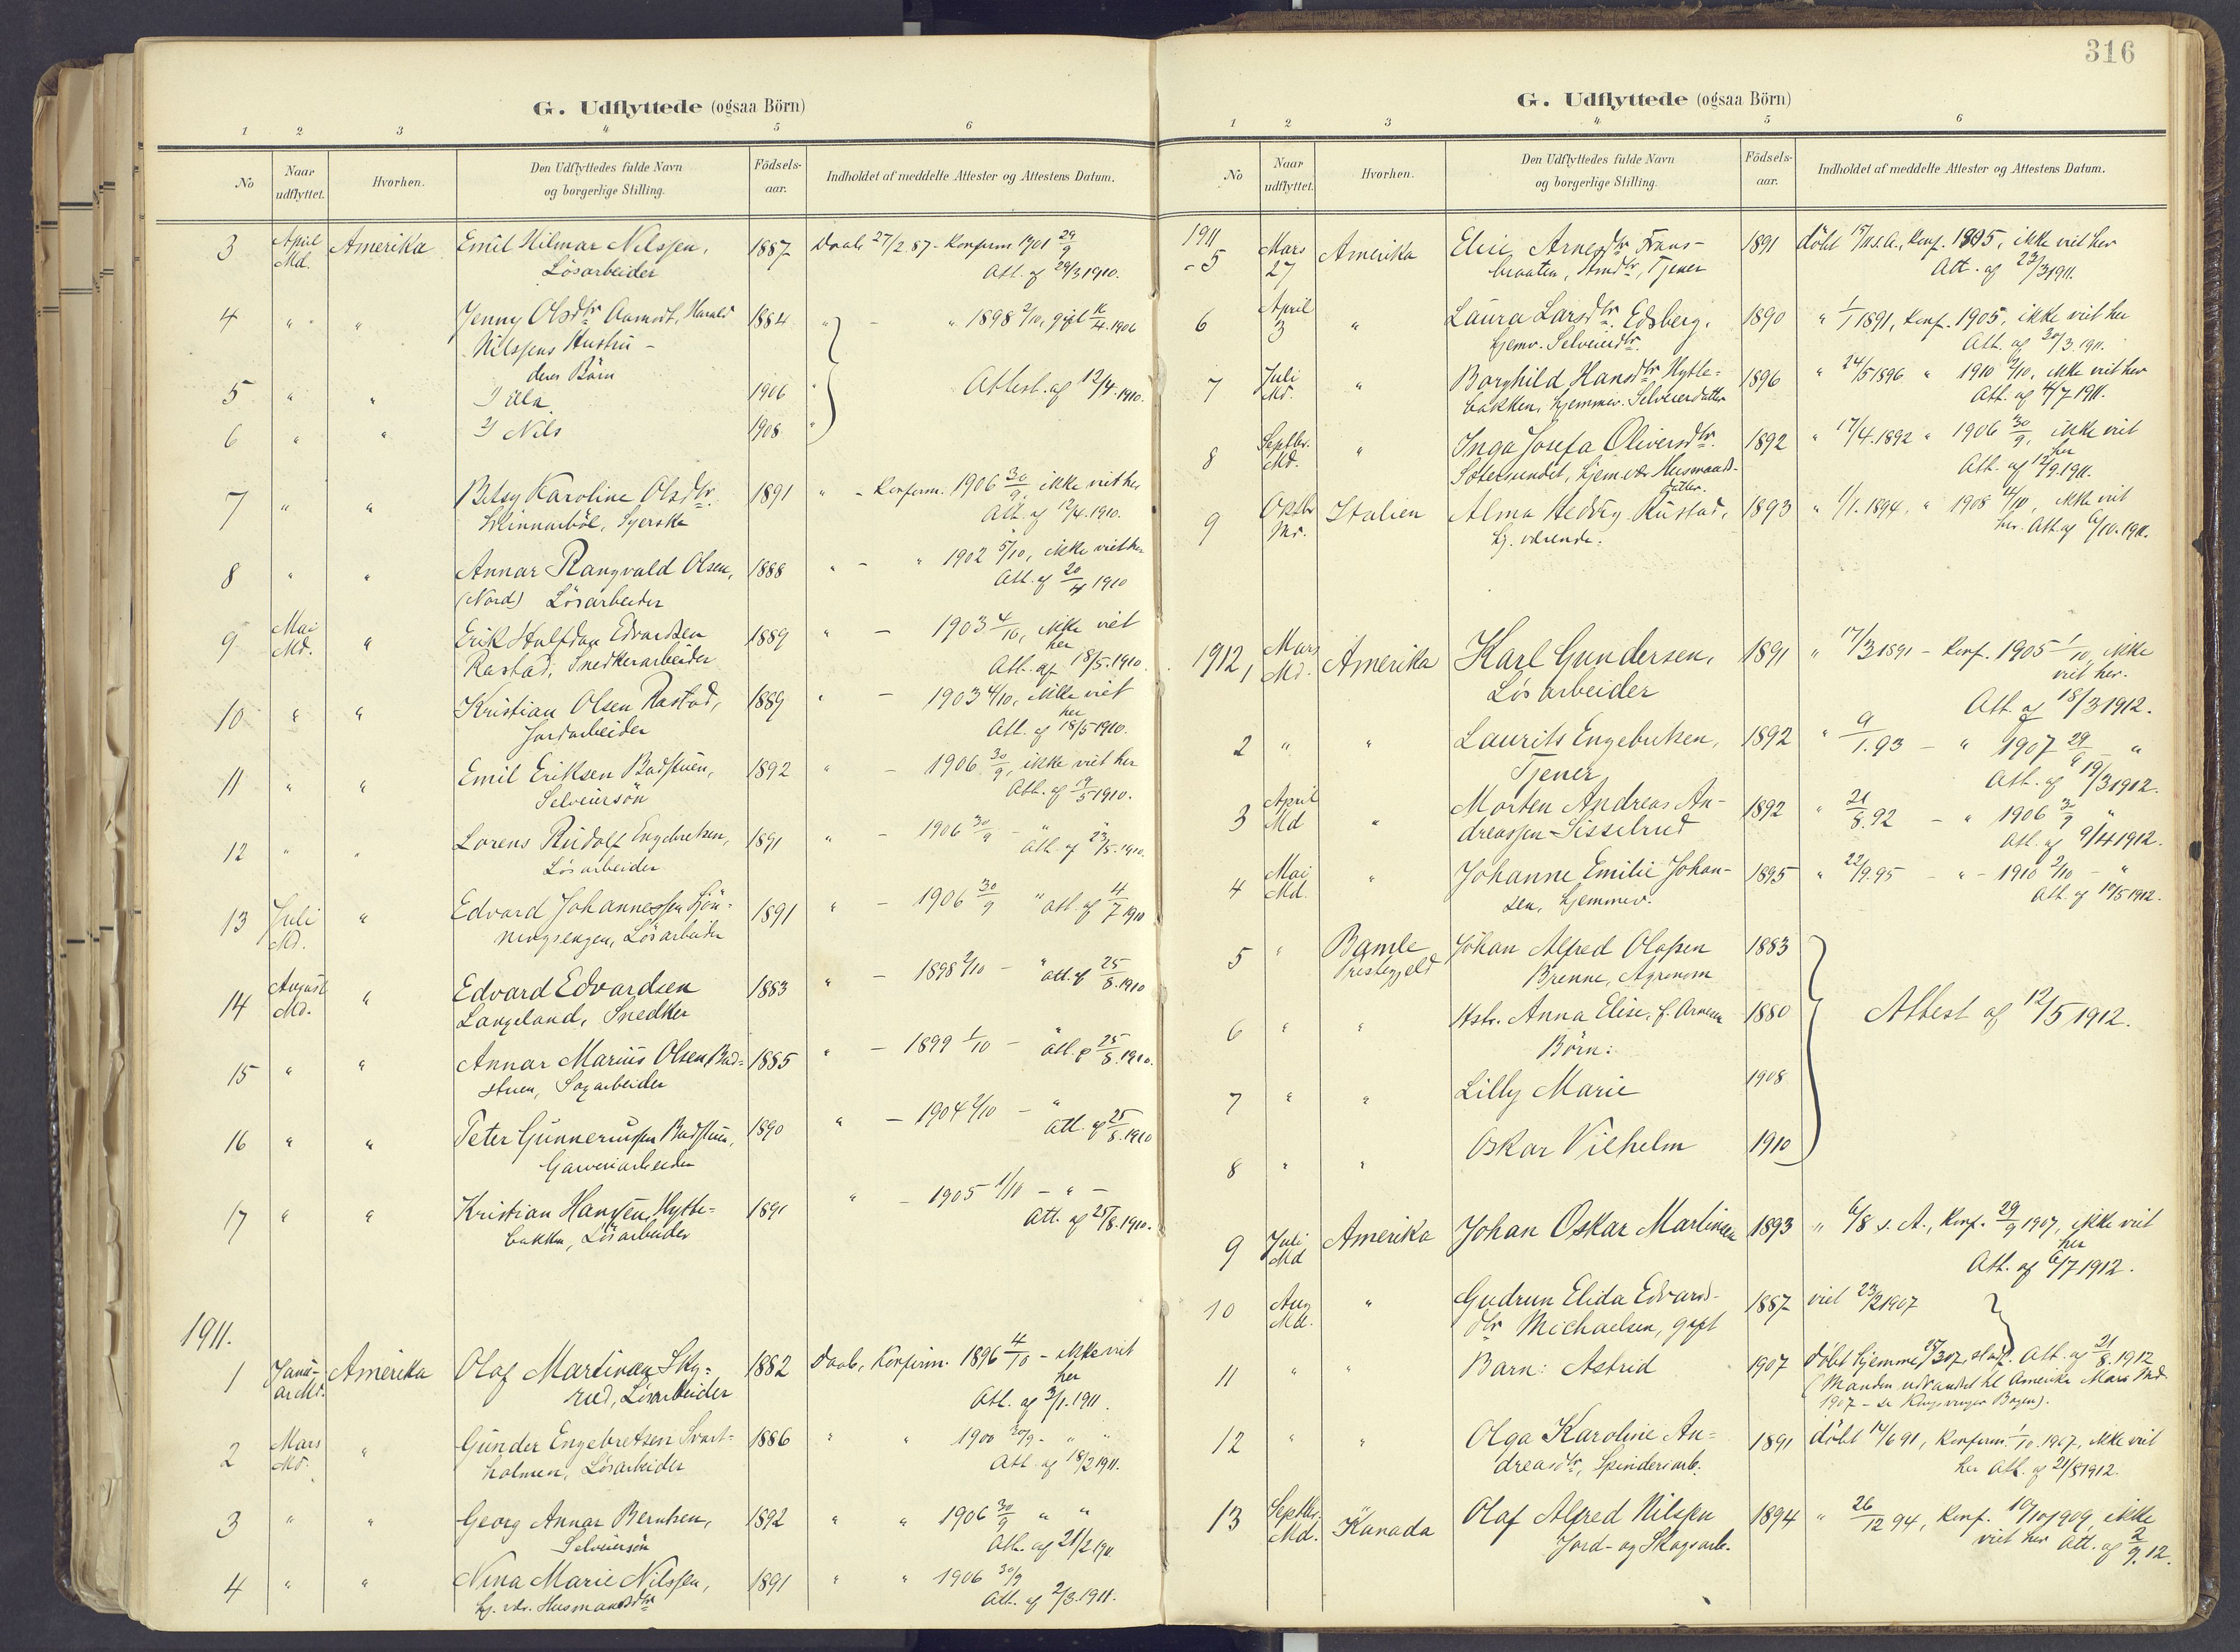 G. Udflyttede (ogsaa Börn)
1 2 3 4 5 6
No Naar udflyttet. Hvorhen. Den Udflyttedes fulde Navn og borgerlige Stilling. Födsels-aar. Indholdet af meddelte Attester og Attestens Datum.
3 April Md. Amerika Emil Hilmar Nilssen, 1887 Daab 27/2 87 - Konfirm 1901 29/9
Lösarbeider Att. af 29/3 1910.
4 " " Jenny Olsdtr. Aamodt, Harald 1884 " - " 1898 2/10, gift 4.1906
Nilssens Hustru -
deres Börn
5 " " 1) Ella 1906 " Attest. af 12/4.1910.
6 " " 2) Nils 1908 "
7 " " Betsy Karoline Olsdtr. 1891 " - Konfirm. 1906 30/9, ikke viet her
Skinnarböl, Syerske Att. af 12/4.1910.
8 " " Annar Rangvald Olsen, 1888 " - " 1902 5/10, ikke viet her
(Nord) Lösarbeider Att. af 20/4 1910
9 Mai Md. " Erik Halfdan Edvardsen 1889 " - 1903 4/10, ikke viet
her
Rastad, Snedkerarbeider Att. af 18/5.1910.
10 " " Kristian Olsen Rastad, 1889 " - 1903 4/10, ikke viet
her
Jordarbeider Att. af 18/5 1910.
11 " " Emil Eriksen Badstuen, 1892 " - 1906 30/9, ikke viet her
Selveiersön Att. af 19/5 1910.
12 " " Lorens Rudolf Engebretsen, 1891 " - 1906 30/9 - " Att. af 23/5.1910.
Lösarbeider
13 Juli Md. " Edvard Johannessen Bjön- 1891 " - 1906 30/9 " att. af 4/7 1910
ningsengen, Lösarbeider
14 August Md. " Edvard Edvardsen 1883 " - 1898 2/10 - " att. af 25/8.1910
Langeland, Snedker
15 " " Annar Marius Olsen Bad- 1885 " - 1899 1/10 - att. af 25/8.1910.
stuen, Sagarbeider
16 " " Peter Gunneriussen Badstuen, 1890 " - 1904 2/10 - "
Garveriarbeider att. af 25/8.1910
17 " " Kristian Hansen Hytte- 1891 " - 1905 1/10 - " -
bakken, Lösarbeider Att. af 25/8.1910.
1911.
1 Janu-ar Md. Amerika Olaf Martinsen Sky- 1882 Daab, Konfirm. 1896 4/10 - ikke viet
her
rud, Lösarbeider Att. af 3/1.1911.
2 Mars Md. " Gunder Engebretsen Svart- 1886 " " 1900 30/9 - " "
holmen, Lösarbeider Att. af 18/2 1911.
3 " " Georg Annar Berntsen, 1892 " " 1906 30/9 " "
Selveiersön Att. af 21/2 1911.
4 " " Nina Marie Nilssen, 1891 " " 1906 30/9
hj. vær. Husmandsdtr Att. af 2/3.1911.
316
G. Udflyttede (ogsaa Börn)
1 2 3 4 5 6
No Naar udflyttet. Hvorhen. Den Udflyttedes fulde Navn og borgerlige Stilling. Födsels-aar. Indholdet af meddelte Attester og Attestens Datum.
1911
5 Mars 27 Amerika Elise Arnesdtr. Frans- 1891 döbt s. A., Konf. 1905, ikke viet her
braaten, Tjener Att. af 23/3 1911.
6 April 3 " Laura Larsdtr. Edsberg, 1890 " 1/1 1891, Konf. 1905, ikke viet her
hjemv. Selveierdtr. Att. af 30/3.1911.
7 Juli Md. " Borghild Hansdtr. Hytte- 1896 " 24/5 1896 " 1910 2/10, ikke viet her
bakken, hjemmev. Selveierdatter Att. af 4/7 1911.
8 Septbr. Md. " Inga Josefa Oliversdtr. 1892 " 17/4.1892 " 1906 30/9, ikke viet
her
Sætersundet, hjemvær. Husmands-datter. Att. af 12/9.1911.
9 Oktbr Md. Italien Alma Hedvig Rustad, 1893 " 1/1.1894, " 1908 4/10, ikke viet
hj. værende. her. Att. af 6/10.1911.
1912, 1 Mars Md. Amerika Karl Gundersen, 1891 " 17/3 1891 - Konf. 1905 1/10, ikke
viet her.
Lösarbeider Att. af 18/3 1912.
2 " " Laurits Engebretsen, 1892 " 9/1.93 - " 1907 29/9 - "
Tjener Att. af 19/3 1912.
3 April Md " Morten Andreas An- 1892 " 21/8.92 - " 1906 30/9 "
dreassen-Sisselrud Att. af 9/4 1912.
4 Mai Md. " Johanne Emilie Johan- 1895 " 22/9.95 - " - 1910 2/10 - "
sen, hjemmev. Att. af 10/5 1912.
5 " Bamle Prestegjeld Johan Alfred Olafsen 1883
Brenne, Agronom
6 " " Hstr. Anna Elise, f. Arnesen 1880 Attest af 12/5 1912.
Börn:
7 " " Lilly Marie 1908
8 " " Oskar Vilhelm 1910
9 Juli Md Amerika Johan Oskar Martinsen 1893 " 6/8 s. A., Konf. 29/9 1907, ikke viet
her
Att. af 6/7 1912.
10 Aug Md. " Gudrun Elida Edvards- 1887 viet 23/2 1907
dtr Michaelsen, gift
11 " " Barn: Astrid 1907 döbt hjemme 07, Att. af 21/8.1912
(Manden udvandret til Amerika Mars Md.
1907 - se Kongsvinger Bogen).
12 " " Olga Karoline An- 1891 döbt 14/6 91, Konfirm. 1/10.1907, ikke viet
dreasdtr., Spinderiarb. her Att. af 21/8 1912.
13 Septbr. Md. Kanada Olaf Alfred Nilssen 1894 " 26/12 94, Konf. 10/10 1909, ikke
Jord- og Skogsarb. viet her Att. af 2/9.12.